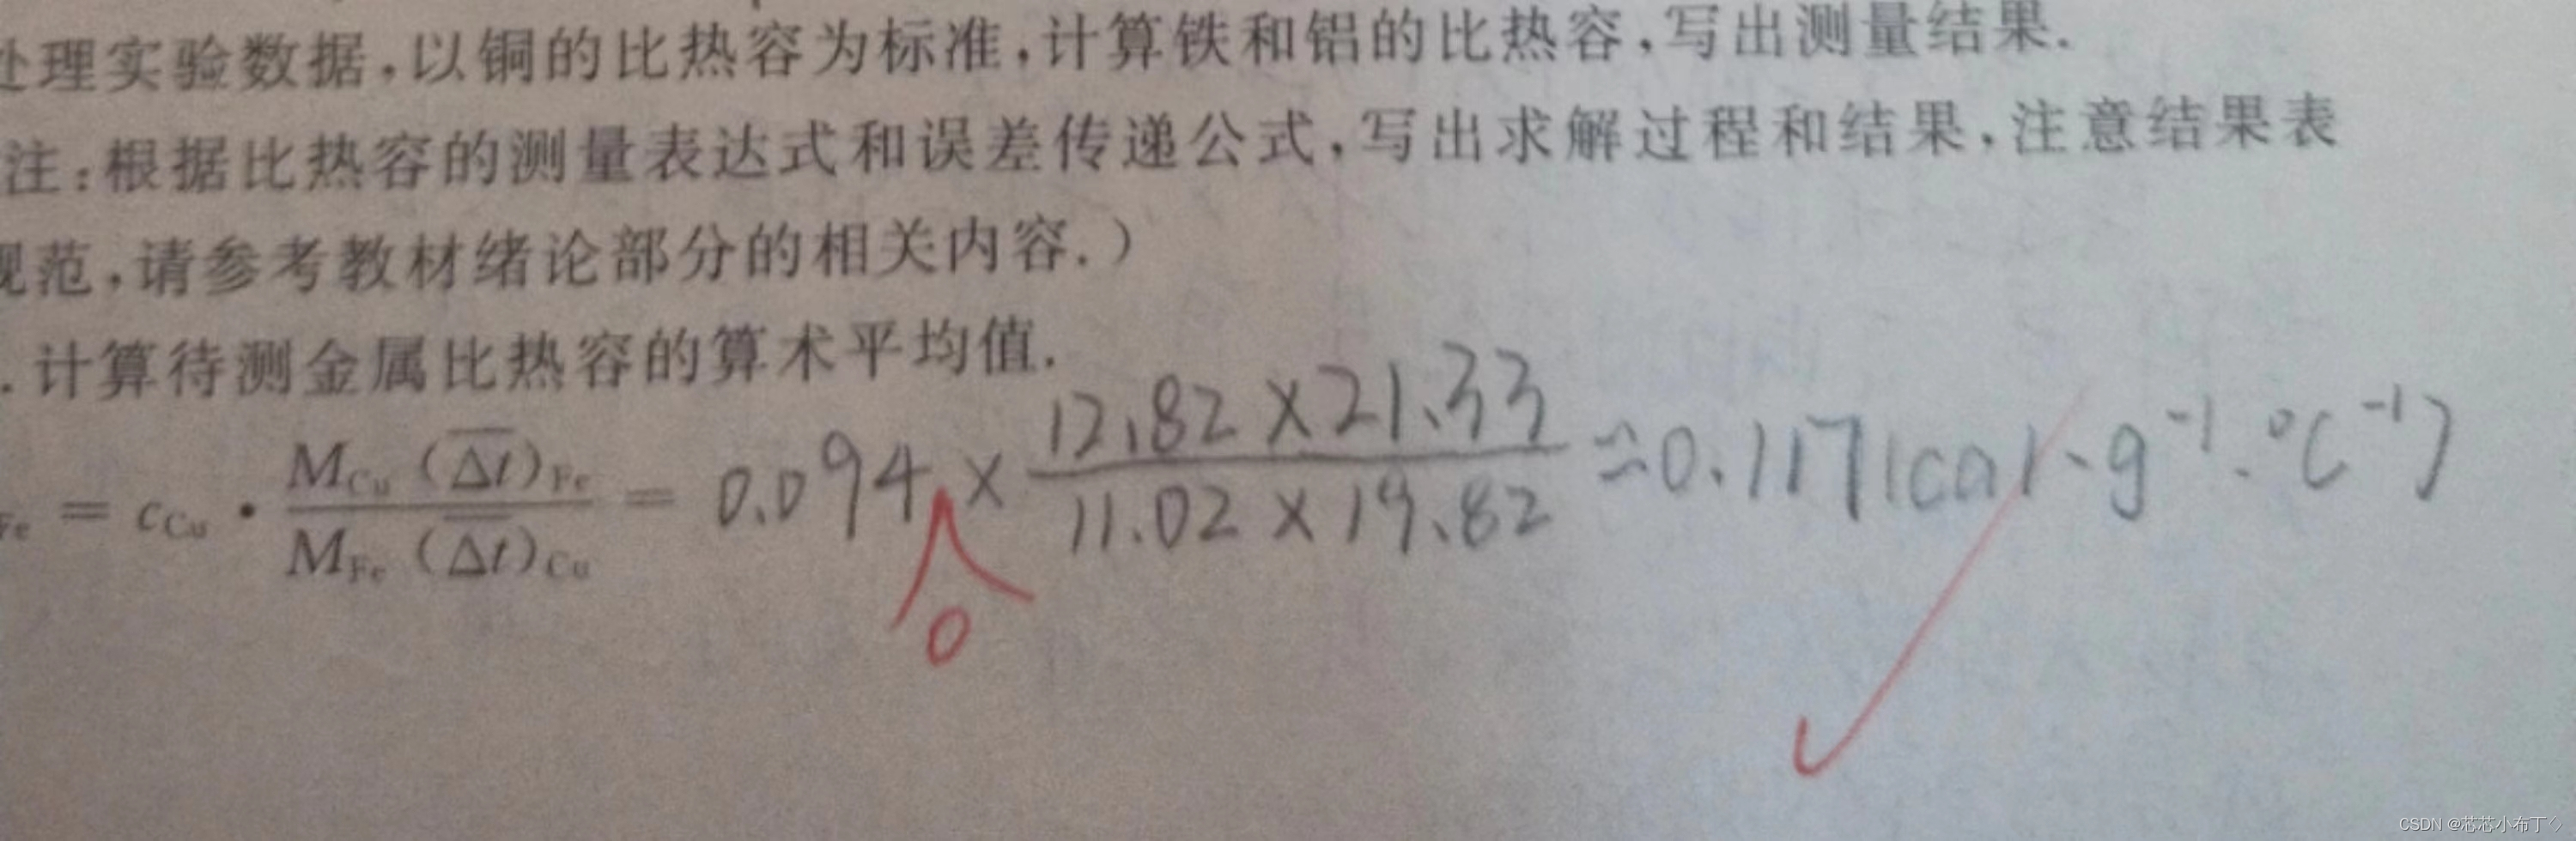 处理实验数据,以铜的比热容为标准,计算铁和铝的比热容,写出测量结果.
注:根据比热容的测量表达式和误差传递公式,写出求解过程和结果,注意结果表
规范,请参考教材绪论部分的相关内容.)
.计算待测金属比热容的算术平均值.
Fe = cCu · MCu (Δt)Fe / MFe (Δt)Cu = 0.094 × 12.82 × 21.33 / 11.02 × 19.82 ≈ 0.117 (cal·g⁻¹·°C⁻¹)
0
CSDN @芯芯小布丁